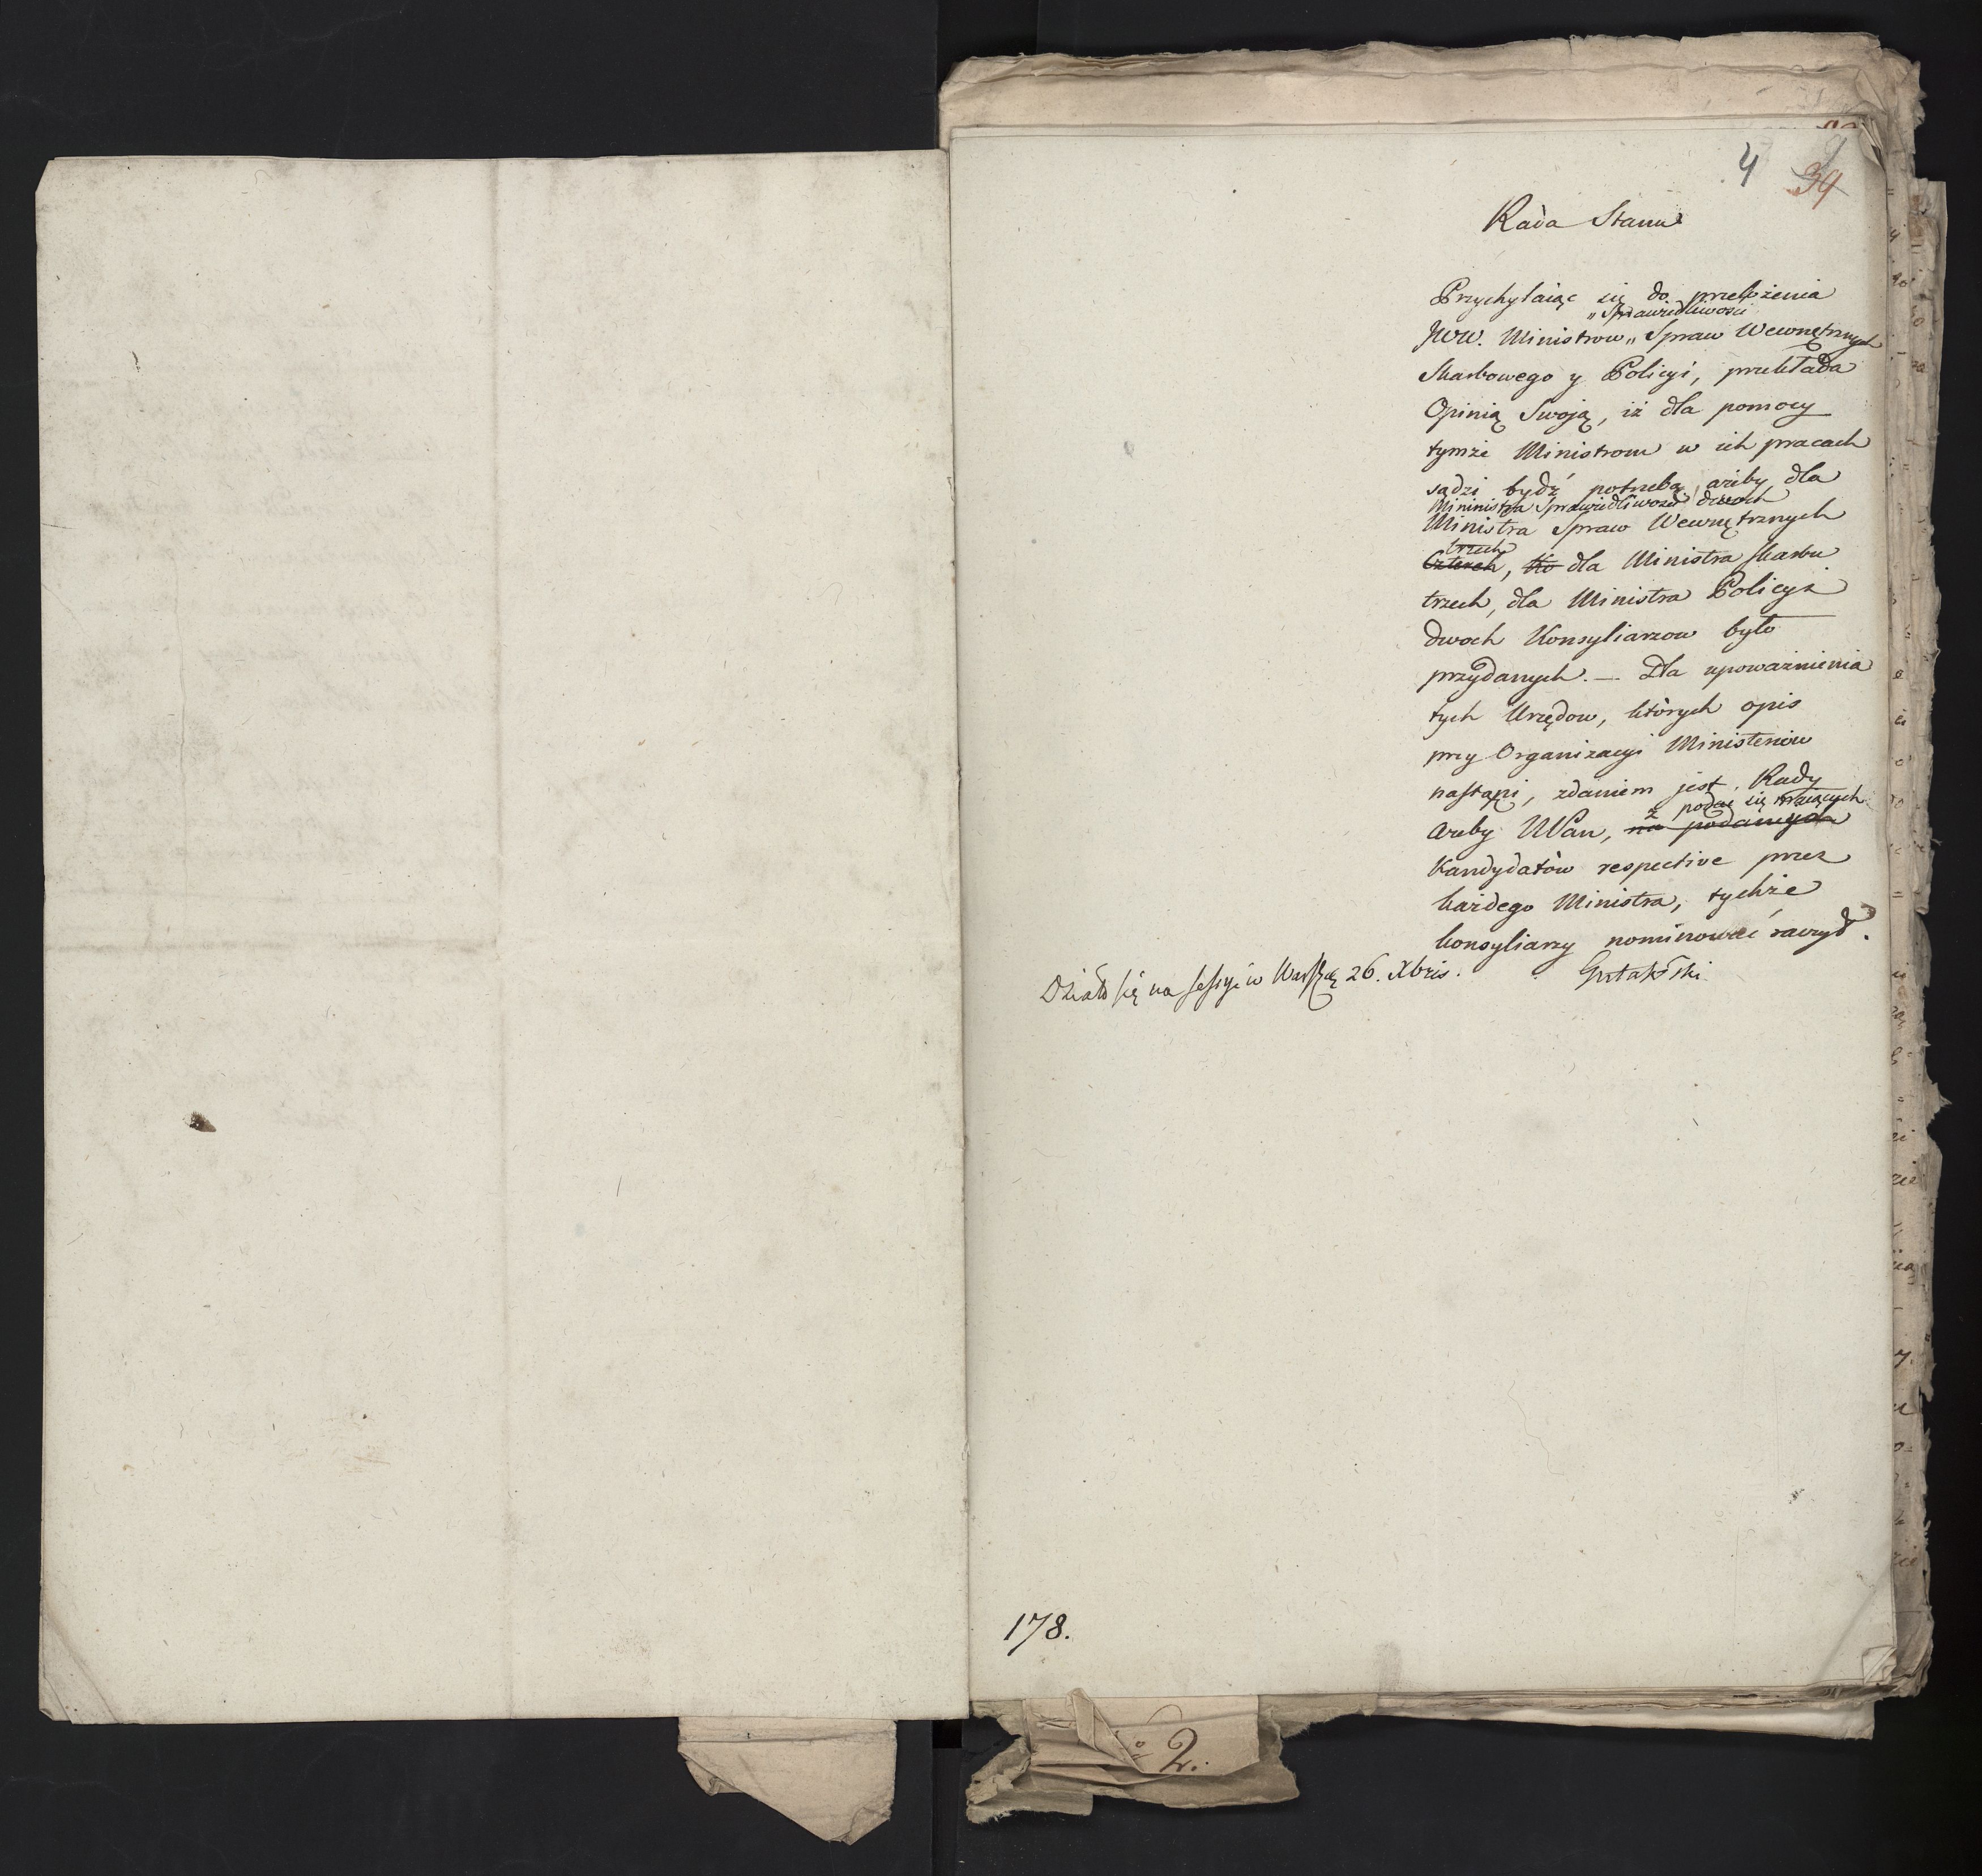 4 34
Rada Stanu
Przychylaiąc się do przełożenia
„Sprawiedliwości
JWW. Ministrow „ Spraw Wewnętrznych
Skarbowego y Policyi, przekłada
Opinią Swoją, iż dla pomocy
tymże Ministrom w ich pracach
sądzi bydź potrzebą, ażeby dla
Mininistra Sprawiedliwości dwoch
Ministra Spraw Wewnętrznych
trzech
Czterech, Ko dla Ministra Skarbu
trzech, dla Ministra Policyi
dwoch Konsyliarzow było
przydanych. — Dla upoważnienia
tych Urzędow, których opis
przy Organizacyi Ministeriów
nastąpi, zdaniem jest, Rady
z podać się maiących
ażeby WPan, na podanych
Kandydatów respective przez
każdego Ministra, tychże
konsyliarzy nominować raczył.
Działo się na sessyi w Warszę 26. Xbris. Gutakowski
178.
2.